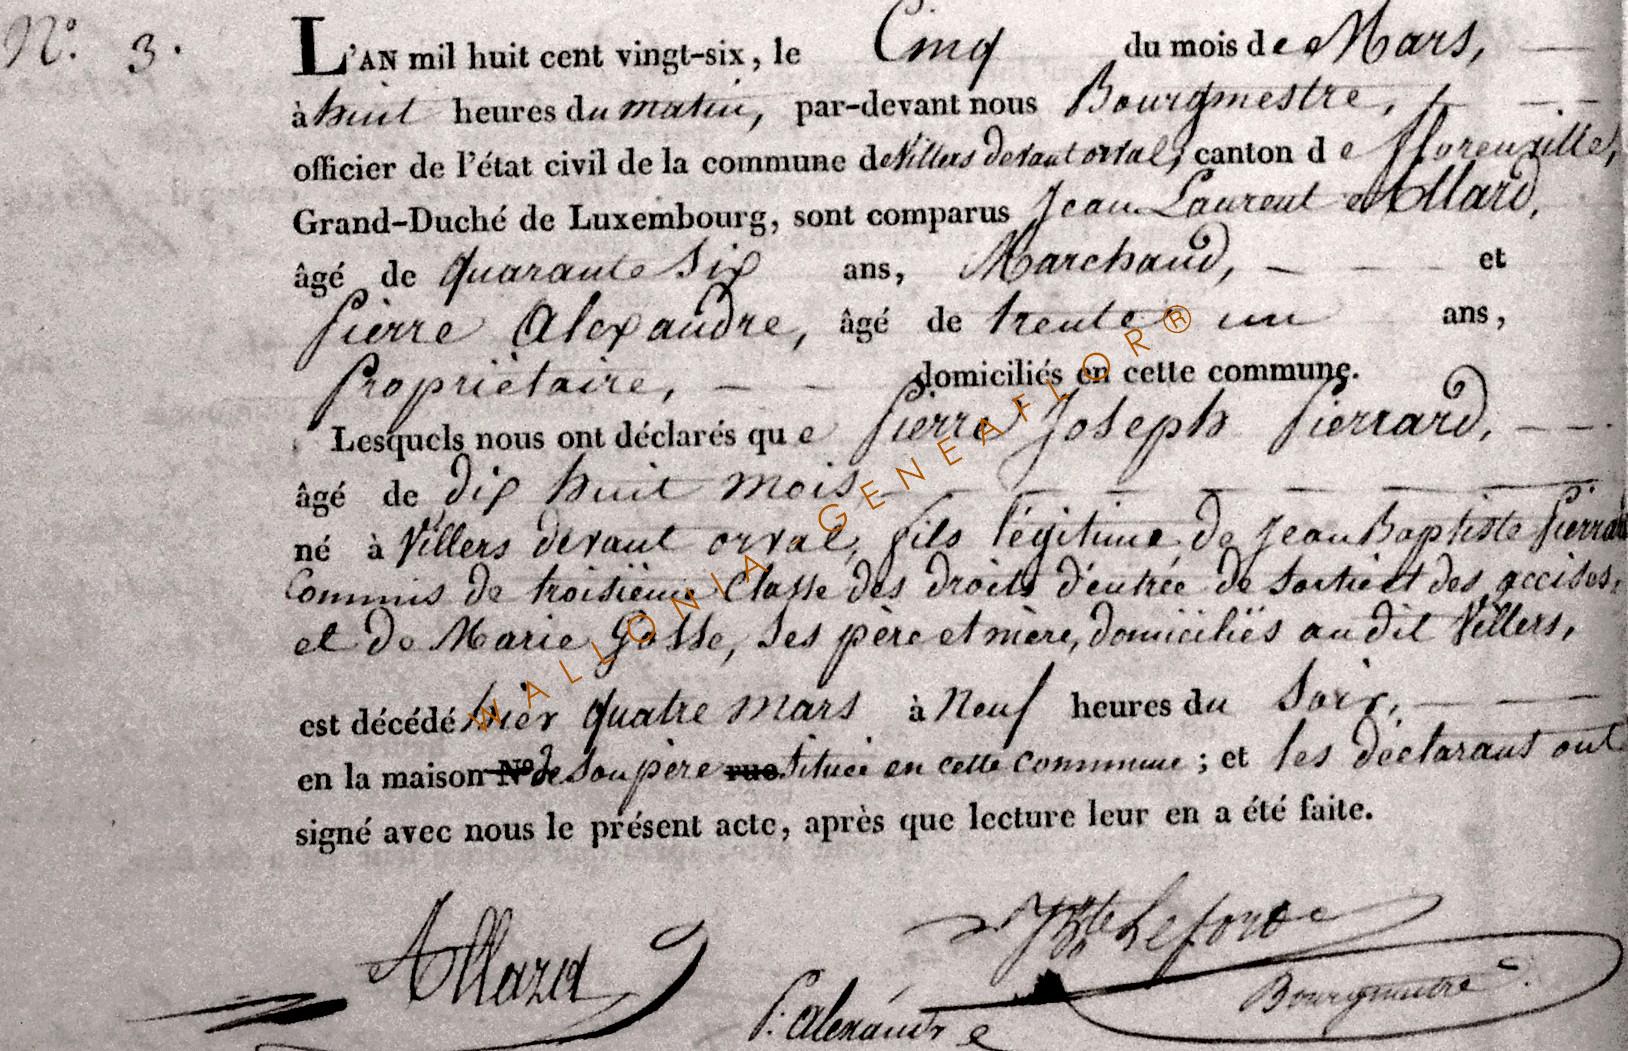 N.º 3.
L'AN mil huit cent vingt-six, le Cinq du mois de Mars,
à huit heures du matin, par-devant nous Bourgmestre,
officier de l'état civil de la commune de Villers devant orval, canton de florenville,
Grand-Duché de Luxembourg, sont comparus Jean Laurent Allard,
âgé de quarante Six ans, Marchand, et
Pierre Alexandre, âgé de trente un ans,
Propriètaire, domiciliés en cette commune.
Lesquels nous ont déclarés que Pierre Joseph Pierrard,
âgé de dix huit mois
né à Villers devant orval, fils légitime de Jean Baptiste Pierrard
Commis de troisième Classe des droits d'entrée de sortie et des accises,
et de Marie Gosse, ses père et mère, domiciliés au dit Villers,
est décédé hier quatre mars à Neuf heures du Soir,
en la maison Nº de son père rue située en cette commune ; et les déclarants ont
signé avec nous le présent acte, après que lecture leur en a été faite.
Allard
Jn Bte Leforce
P. alexandre
Bourgmestre
WALLONIA GENEAFLOR®